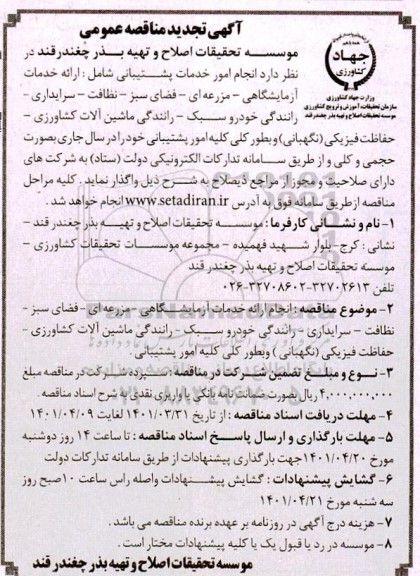 آگهی تجدید مناقصه عمومی
جهاد
کشاورزی
وزارت جهاد کشاورزی
سازمان تحقیقات، آموزش و ترویج کشاورزی
موسسه تحقیقات اصلاح و تهیه بذر چغندر قند
موسسه تحقیقات اصلاح و تهیه بذر چغندرقند در
نظر دارد انجام امور خدمات پشتیبانی شامل : ارائه خدمات
آزمایشگاهی - مزرعه ای - فضای سبز - نظافت - سرایداری -
رانندگی خودرو سبک - رانندگی ماشین آلات کشاورزی -
حفاظت فیزیکی (نگهبانی) و بطور کلی کلیه امور پشتیبانی خود را در سال جاری بصورت
حجمی و کلی و از طریق سامانه تدارکات الکترونیکی دولت (ستاد) به شرکت های
دارای صلاحیت و مجوز از مراجع ذیصلاح به شرح ذیل واگذار نماید . کلیه مراحل
مناقصه از طریق سامانه فوق به آدرس www.setadiran.ir انجام خواهد شد .
۱- نام و نشانی کارفرما : موسسه تحقیقات اصلاح و تهیه بذر چغندر قند -
نشانی : کرج - بلوار شهید فهمیده - مجموعه موسسات تحقیقات کشاورزی -
موسسه تحقیقات اصلاح و تهیه بذر چغندر قند
تلفن ۳۲۷۰۲۶۱۳-۳۲۷۰۸۶۰۲-۰۲۶
۲- موضوع مناقصه : انجام ارائه خدمات آزمایشگاهی - مزرعه ای - فضای سبز -
نظافت - سرایداری - رانندگی خودرو سبک - رانندگی ماشین آلات کشاورزی -
حفاظت فیزیکی (نگهبانی) و بطور کلی کلیه امور پشتیبانی .
۳- نوع و مبلغ تضمین شرکت در مناقصه : سپرده شرکت در مناقصه مبلغ
۴,۰۰۰,۰۰۰,۰۰۰ ریال بصورت ضمانت نامه بانکی یا واریزی نقدی به شرح اسناد مناقصه .
۴- مهلت دریافت اسناد مناقصه : از تاریخ ۱۴۰۱/۰۳/۳۱ لغایت ۱۴۰۱/۰۴/۰۹
۵- مهلت بارگذاری و ارسال پاسخ اسناد مناقصه : تا ساعت ۱۴ روز دوشنبه
مورخ ۱۴۰۱/۰۴/۲۰ جهت بارگذاری پیشنهادات از طریق سامانه تدارکات دولت
۶- گشایش پیشنهادات : گشایش پیشنهادات واصله راس ساعت ۱۰ صبح روز
سه شنبه مورخ ۱۴۰۱/۰۴/۲۱
۷- هزینه درج آگهی در روزنامه بر عهده برنده مناقصه می باشد .
۸- موسسه در رد یا قبول یک یا کلیه پیشنهادات مختار است .
موسسه تحقیقات اصلاح و تهیه بذر چغندر قند